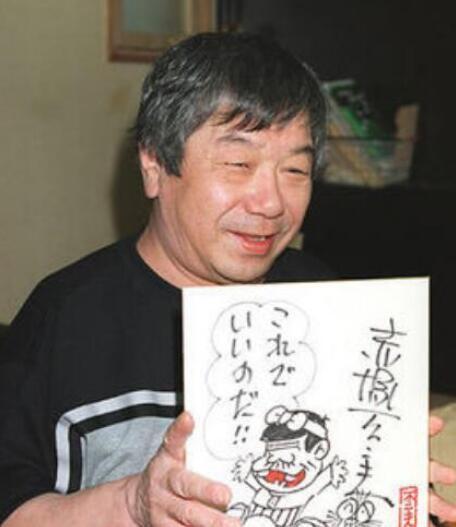 これで
いいのだ!!
赤塚不二夫